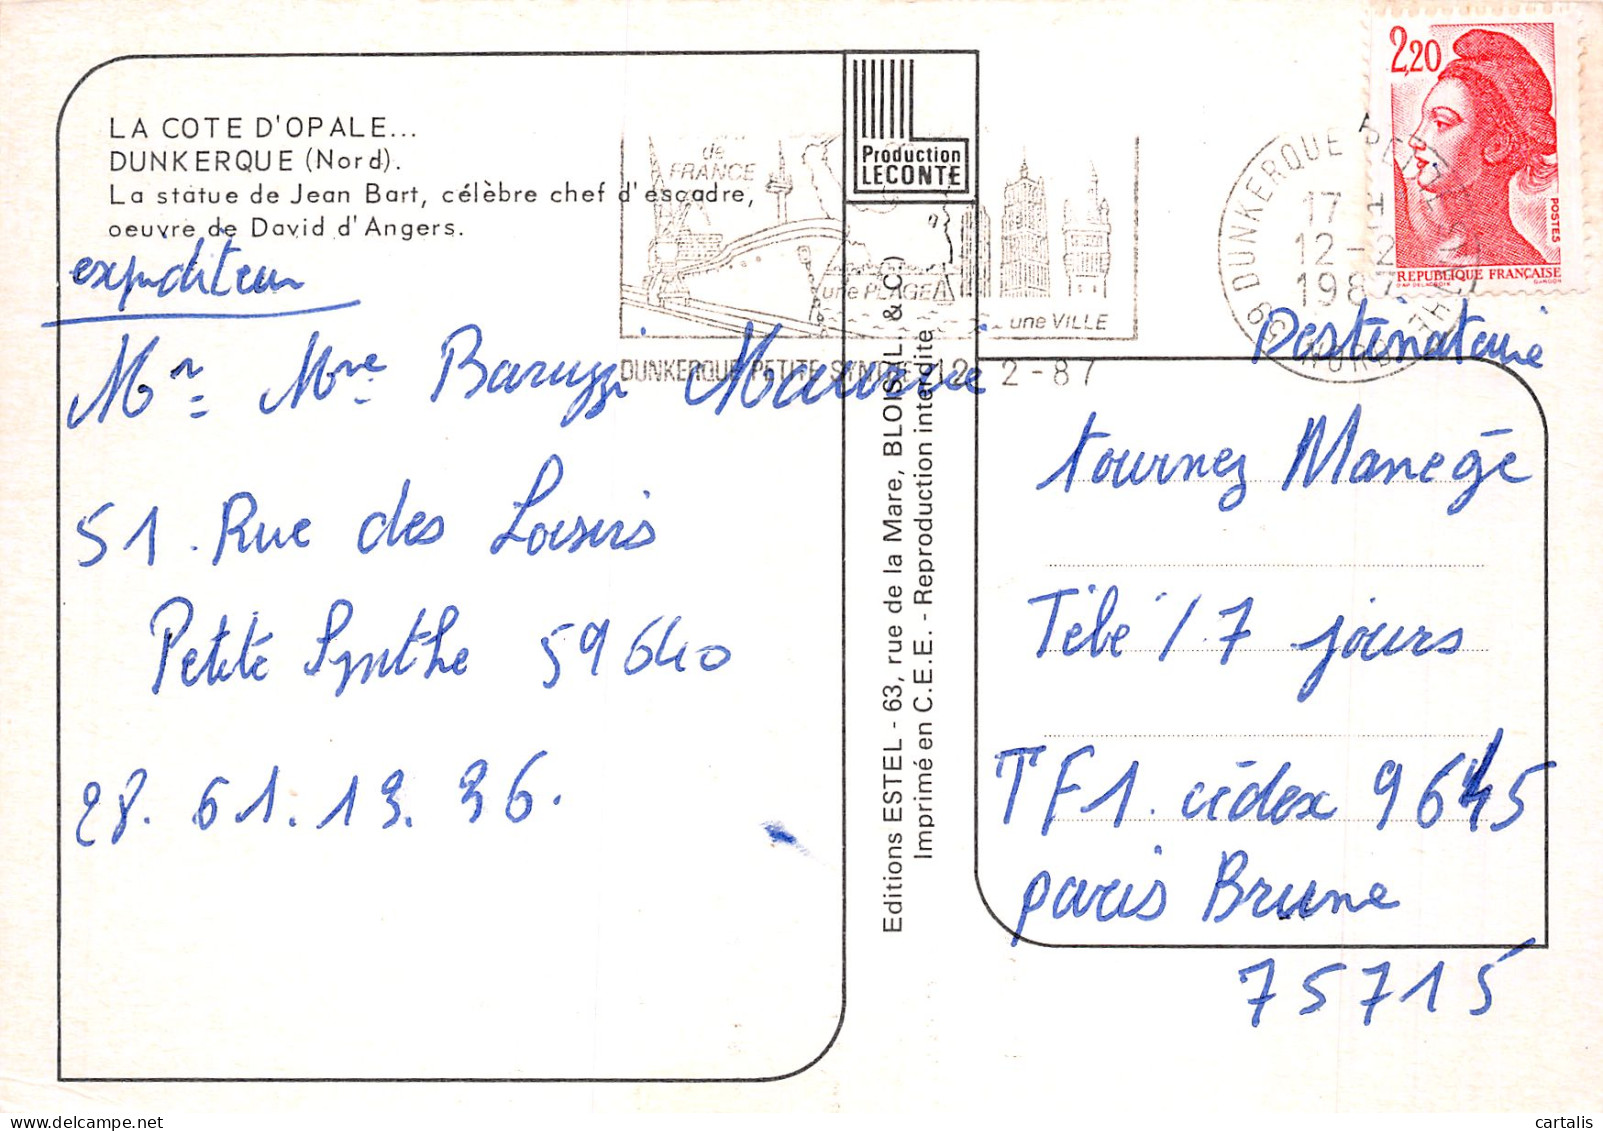 LA COTE D'OPALE...
DUNKERQUE (Nord).
La statue de Jean Bart, célèbre chef d'escadre,
oeuvre de David d'Angers.
expéditeur
Mr Mme Baruzzi Maurice
51. Rue des Loisirs
Petite Synthe 59640
28. 61. 13. 36.
Production
LECONTE
de
FRANCE
une PLAGE
une VILLE
DUNKERQUE PETITE SYNTHE 12-2-87
Editions ESTEL - 63, rue de la Mare, BLOIS(L. & C)
Imprimé en C.E.E. - Reproduction interdite
2,20
POSTES
REPUBLIQUE FRANÇAISE
59 DUNKERQUE PETITE SYNTHE NORD
17 H
12-2
1987
Destinataire
tournez Manège
Télé / 7 jours
TF1. cédex 9645
paris Brune
75715
cartalis